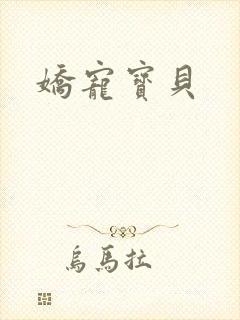 嬌寵寶貝
烏馬拉